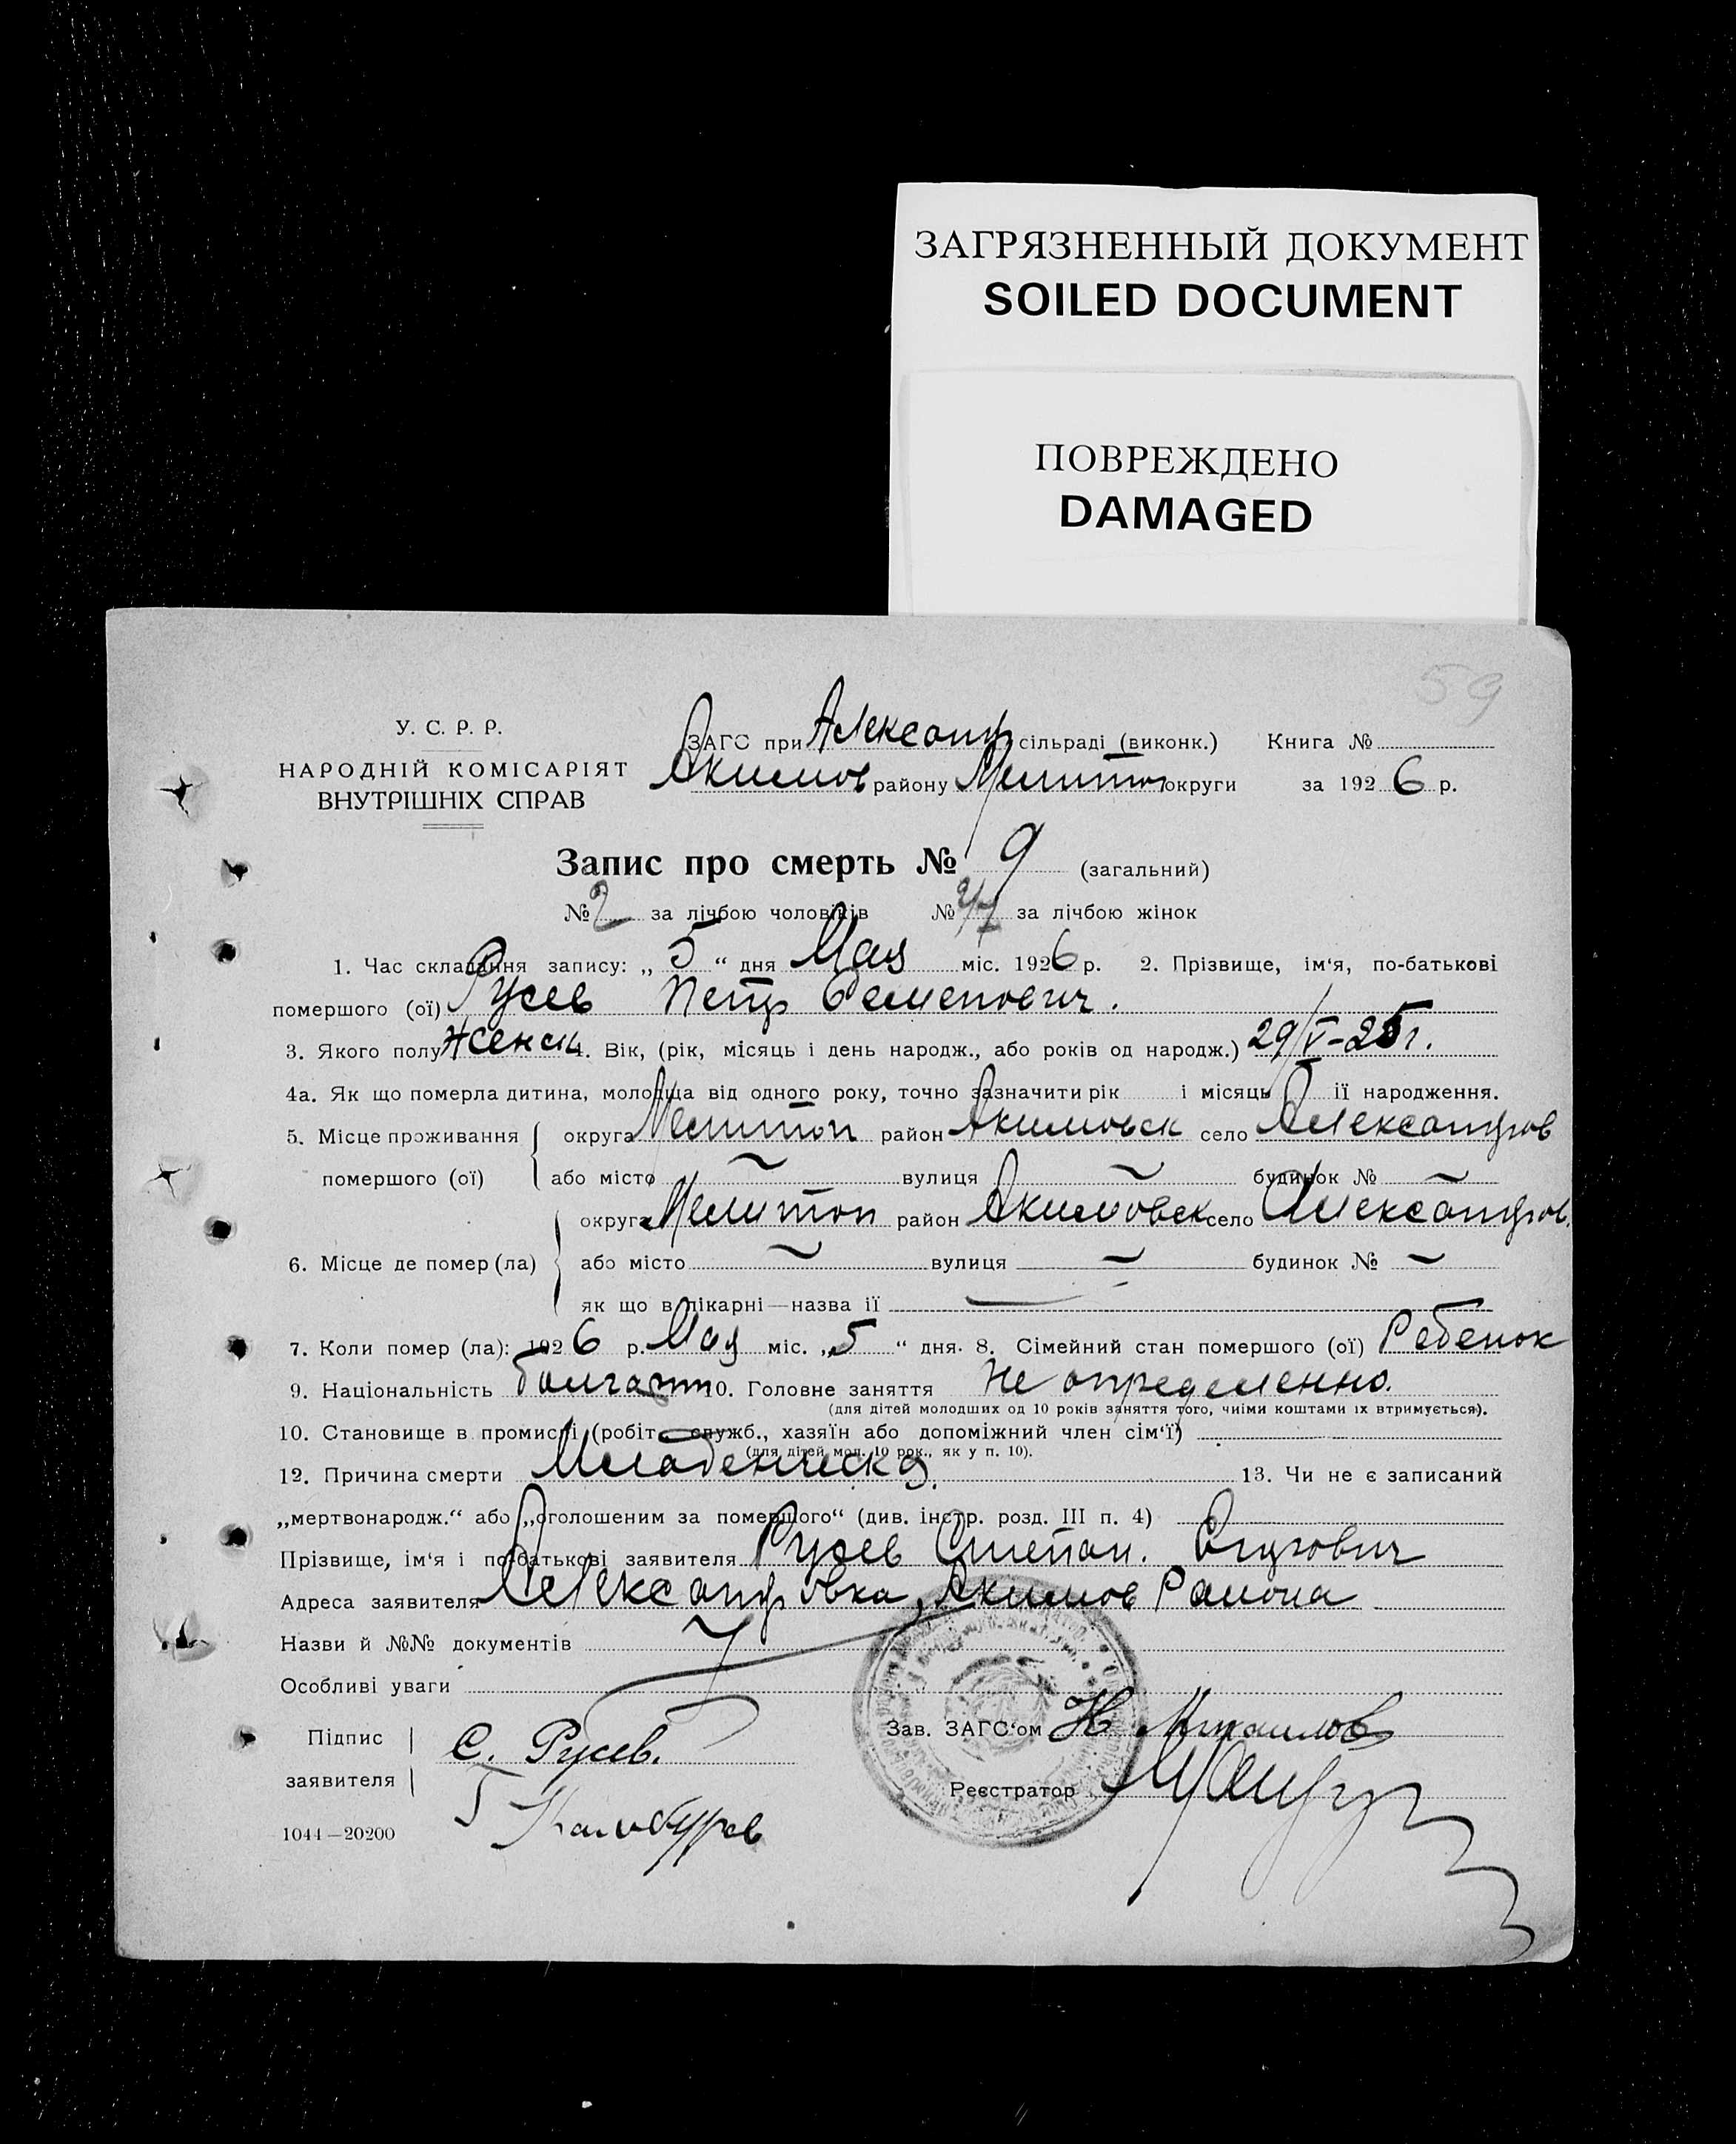 ЗАГРЯЗНЕННЫЙ ДОКУМЕНТ
SOILED DOCUMENT
ПОВРЕЖДЕНО
DAMAGED
59
У. С. Р. Р.
НАРОДНІЙ КОМІСАРІЯТ
ВНУТРІШНІХ СПРАВ
ЗАГС при Александр сільраді (виконк.) Книга №
Акимов району Мелитоп округи за 1926 р.
Запис про смерть № 9 (загальний)
№ 2 за лічбою чоловіків № за лічбою жінок
1. Час складання запису: „ 5 “ дня Мая міс. 1926 р. 2. Прізвище, ім‘я, по-батькові
помершого (ої) Русев Петр
3. Якого полу Женск 4. Вік, (рік, місяць і день народж., або років од народж.) 29/V-25г.
4а. Як що померла дитина, молодша від одного року, точно зазначити рік і місяць її народження.
5. Місце проживання округа Мелитоп район Акимовск село Александров
помершого (ої) або місто вулиця будинок №
округа Мелитоп район Акимовск село Александров.
6. Місце де помер (ла) або місто вулиця будинок №
як що в лікарні—назва її
7. Коли помер (ла): 1926 р. Мая міс. „5“ дня. 8. Сімейний стан помершого (ої) Ребенок
9. Національність болгарин 10. Головне заняття Не определенно.
(для дітей молодших од 10 років заняття того, чиїми коштами їх втримується).
10. Становище в промислі (робіт., служб., хазяїн або допоміжний член сім‘ї)
(для дітей мол. 10 рок., як у п. 10).
12. Причина смерти Младенческая. 13. Чи не є записаний
„мертвонародж.“ або „оголошеним за померлого“ (див. інстр. розд. III п. 4)
Прізвище, ім‘я і по-батькові заявителя Русев Степан.
Адреса заявителя Александровка, Акимов Района
Назви й №№ документів
Особливі уваги
Підпис
заявителя
С. Русев.
Зав. ЗАГС‘ом Н Михаилов
Реєстратор
1044—20200